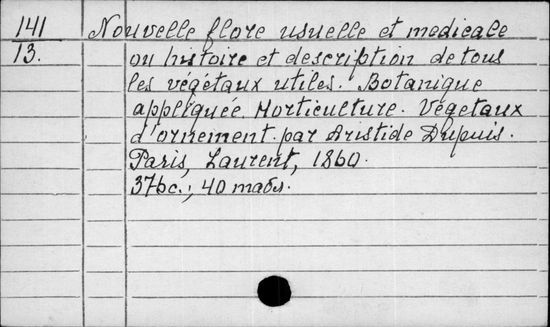 141 Nouvelle flore usuelle et medicale
13. ou histoire et description de tous
les végétaux utiles. Botanique
appliquée. Horticulture. Végetaux
d'ornement par Aristide Dupuis.
Paris, Laurent, 1860.
376c.; 40 табл.